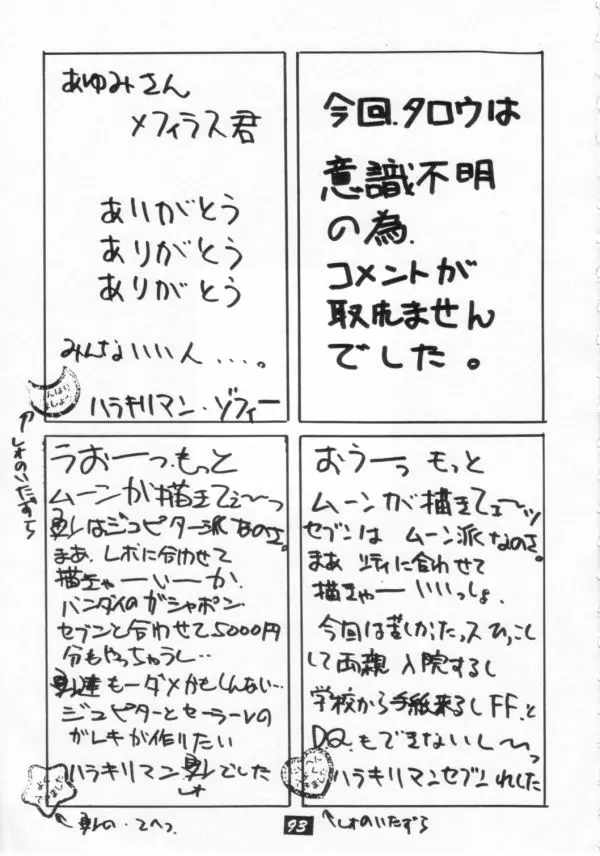 今回、タロウは
意識不明
の為、
コメントが
取れません
でした。
あゆみさん
メフィラス君
ありがとう
ありがとう
ありがとう
みんないい人....。
ハラキリマン・ゾフィー
おうーっ もっと
ムーンが描きてェ〜ッ
セブンは ムーン派なのさ。
まあ リティに合わせて
描きゃーいいっしょ、
今回は苦しかったっス ひっこし
して両親 入院するし
学校から手紙来るしFF.と
DQ.もできないし〜っ
ハラキリマンセブンれした
うおーっ.もっと
ムーンが描きてぇ〜っ
はジュピター派なのさ。
まあ.レボに合わせて
描きゃーいーか.
バンダイのガシャポン
セブンと合わせて5000円
分もやっちゃうし..
達もーダメかもしんない...
ジュピターとセーラーVの
ガレキが作りたい
ハラキリマン でした
の・てへっ.
93
のいたずら
のいたずら